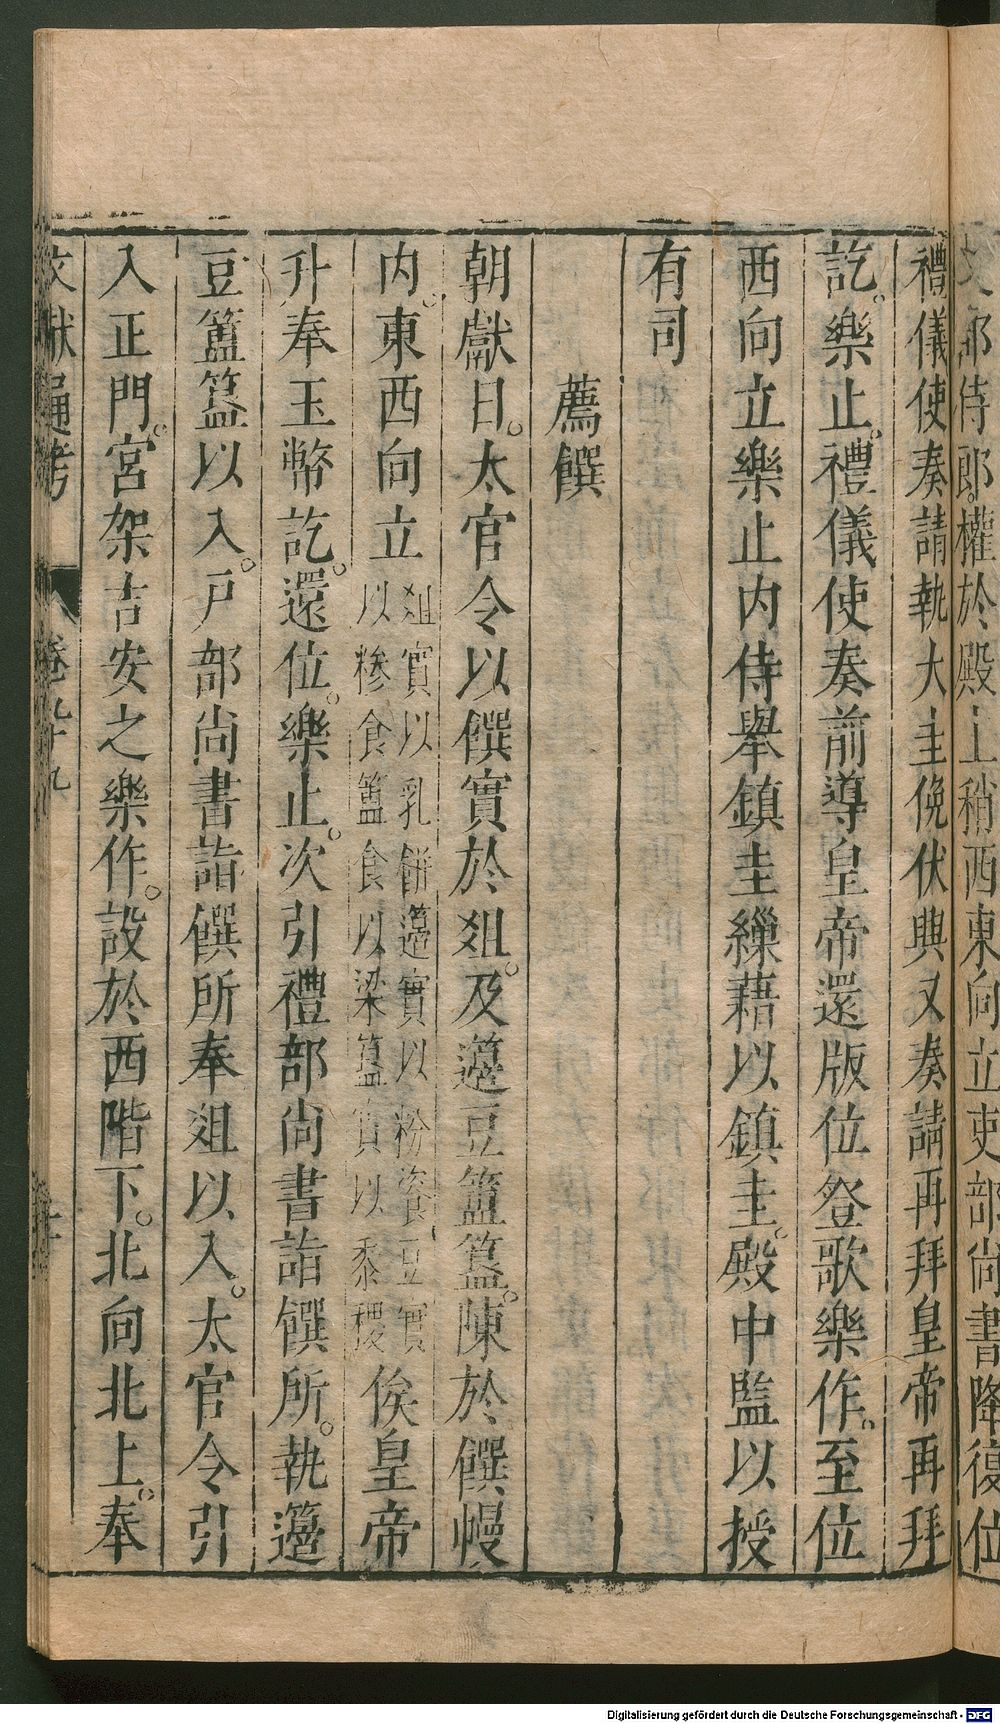 文部侍郎。權於殿上稍西東向立吏部尚書降復位
禮儀使奏請執大圭俛伏興又奏請再拜皇帝再拜
訖。樂止。禮儀使奏前導皇帝還版位登歌樂作。至位
西向立樂止内侍舉鎮圭繅藉以鎮圭。殿中監以授
有司
薦饌
朝獻日。太官令以饌實於俎。及籩豆簠簋。陳於饌幔
内。東西向立
俎實以乳餅籩實以粉餈豆實
以糝食簠食以粱簋實以黍稷
俟皇帝
升奉玉幣訖。還位。樂止。次引禮部尚書詣饌所。執籩
豆簠簋以入。戶部尚書詣饌所奉俎以入。太官令引
入正門。宮架吉安之樂作。設於西階下。北向北上。奉
文獻通考 卷九十九
Digitalisierung gefördert durch die Deutsche Forschungsgemeinschaft - DFG